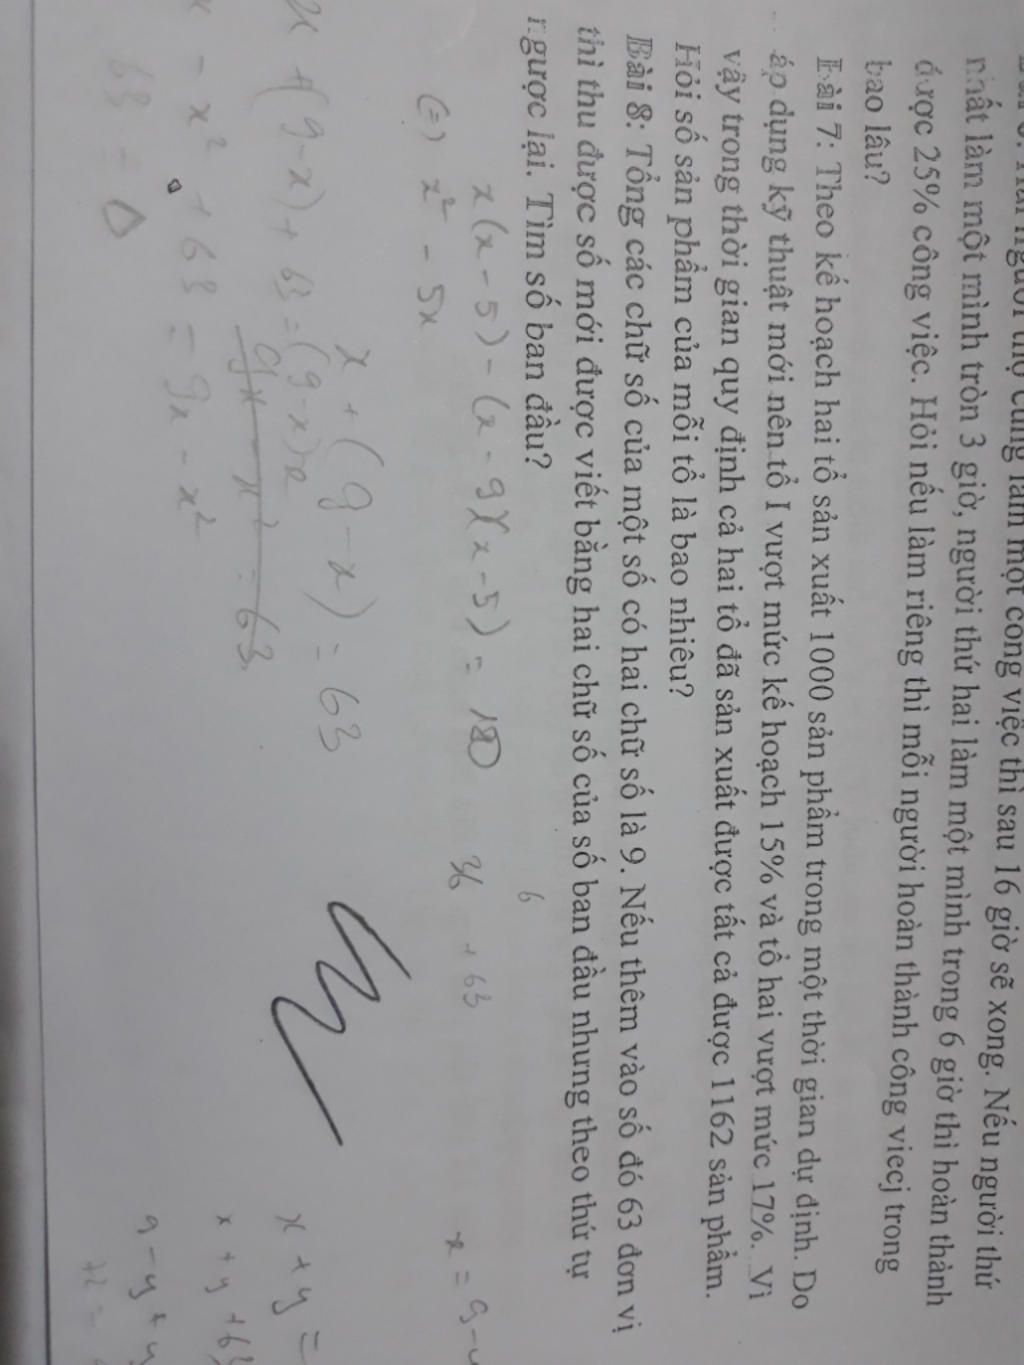 người thợ cùng làm một công việc thì sau 16 giờ sẽ xong. Nếu người thứ
nhất làm một mình tròn 3 giờ, người thứ hai làm một mình trong 6 giờ thì hoàn thành
được 25% công việc. Hỏi nếu làm riêng thì mỗi người hoàn thành công viecj trong
bao lâu?
Bài 7: Theo kế hoạch hai tổ sản xuất 1000 sản phẩm trong một thời gian dự định. Do
áp dụng kỹ thuật mới nên tổ I vượt mức kế hoạch 15% và tổ hai vượt mức 17%. Vì
vậy trong thời gian quy định cả hai tổ đã sản xuất được tất cả được 1162 sản phẩm.
Hỏi số sản phẩm của mỗi tổ là bao nhiêu?
Bài 8: Tổng các chữ số của một số có hai chữ số là 9. Nếu thêm vào số đó 63 đơn vị
thì thu được số mới được viết bằng hai chữ số của số ban đầu nhưng theo thứ tự
ngược lại. Tìm số ban đầu?
6
x(x-5) - (x-9)(x-5) = 180
36 + 63
x = 9 -
(=) x² - 5x
x + (9-x) = 63
x + (9-x) + 63 = (9-x)x
x + y =
9x - x² = 63
x + y + 63
- x² + 63 = 9x - x²
9 - y + y
63 = 0